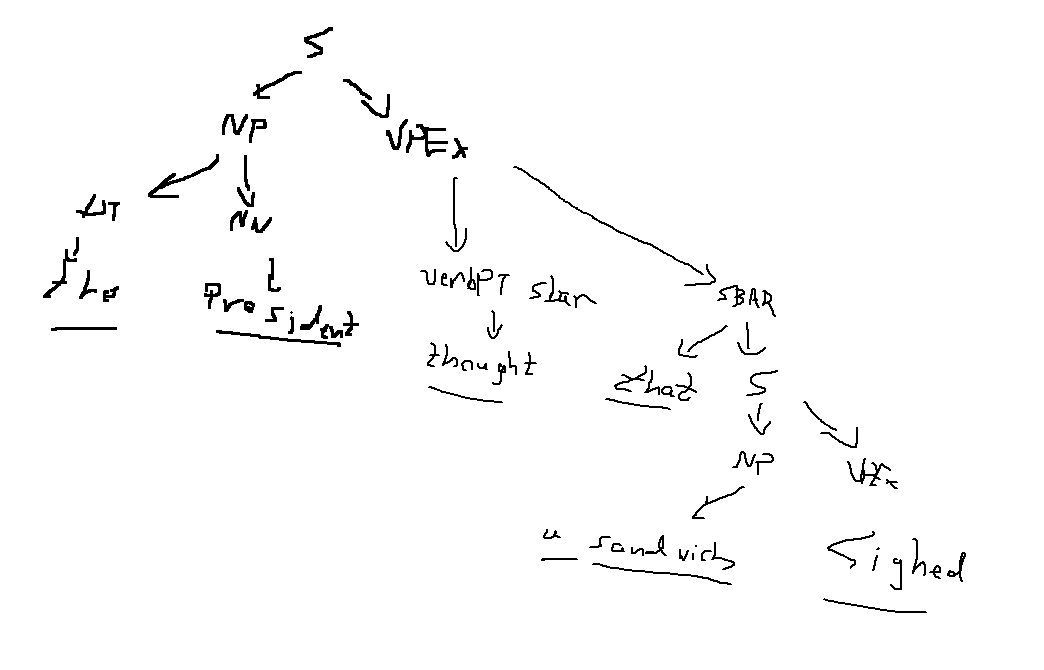 S
NP VPEx
DT NN
the President
verbPT sbar SBAR
thought that S
NP VPEx
a sandwich sighed